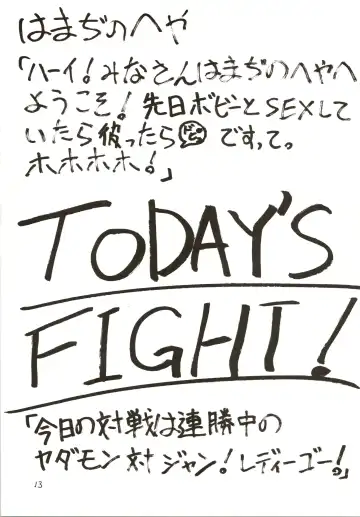 はまぢのへや
「ハーイ!みなさんはまぢのへやへ
ようこそ!先日ボビーとSEXして
いたら彼ったら ですって。
ホホホホ!」
TODAY'S
FIGHT!
「今日の対戦は連勝中の
ヤダモン対ジャン!レディーゴー!」
13